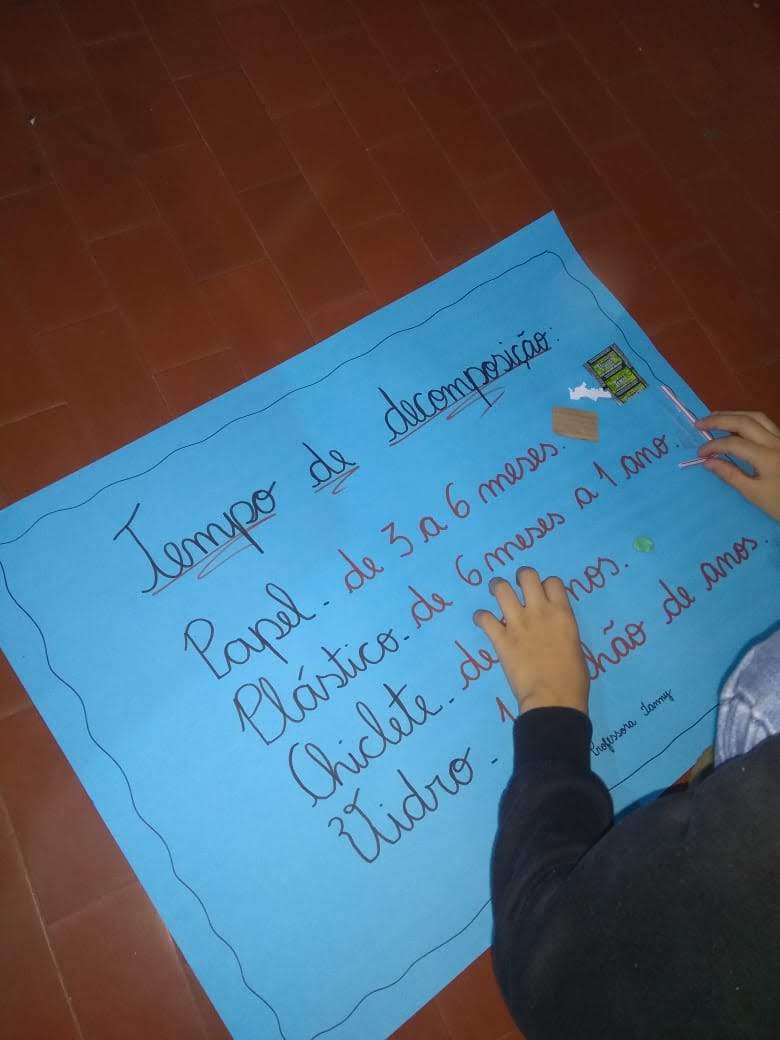 Tempo de decomposição:
Papel. de 3 a 6 meses.
Plástico. de 6 meses a 1 ano.
Chiclete. de nos.
Vidro. 1 hão de anos.
Professora Tanny